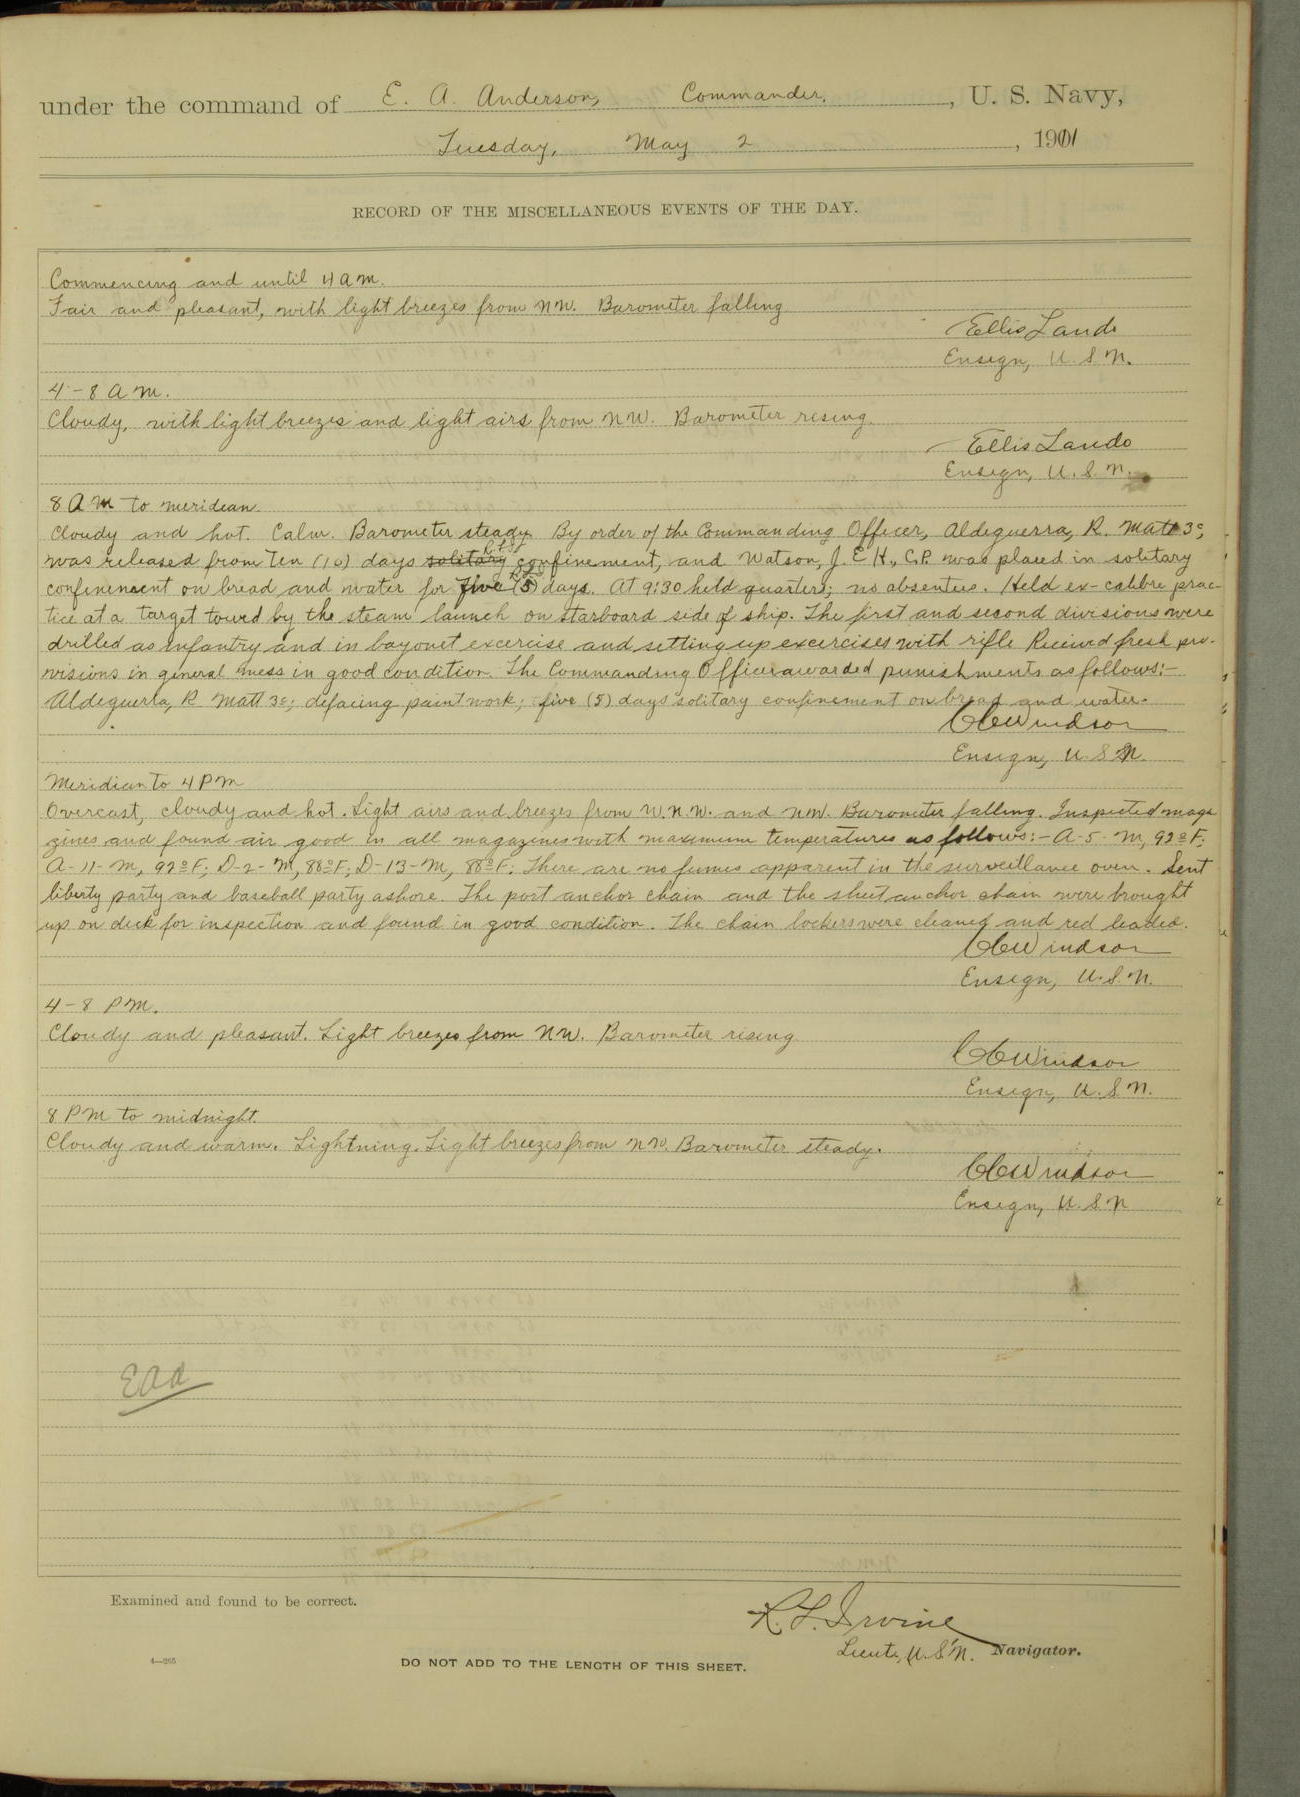 under the command of E. A. Anderson, Commander, U. S. Navy,
Tuesday, May 2, 1911
RECORD OF THE MISCELLANEOUS EVENTS OF THE DAY.
Commencing and until 4 a m.
Fair and pleasant, with light breezes from NW. Barometer falling
Ellis Lando
Ensign, U. S. N.
4-8 a m.
Cloudy, with light breezes and light airs from NW. Barometer rising.
Ellis Lando
Ensign, U. S. N.
8 a m to meridian.
Cloudy and hot. Calm. Barometer steady. By order of the Commanding Officer, Aldeguerra, R. Matt 3c;
was released from Ten (10) days solitary confinement, and Watson, J. E. H., C.P. was placed in solitary
confinement on bread and water for five (5) days. At 9:30 held quarters; no absentees. Held ex-calibre prac-
tice at a target towed by the steam launch on starboard side of ship. The first and second divisions were
drilled as infantry and in bayonet excercise and setting up excercises with rifle Received fresh pro-
visions in general mess in good condition. The Commanding Officer awarded punishments as follows:-
Aldeguerra, R Matt 3c; defacing paintwork; five (5) days solitary confinement on bread and water.
CC Windsor
Ensign, U S N.
Meridian to 4 P M
Overcast, cloudy and hot. Light airs and breezes from W.N.W. and NW. Barometer falling. Inspected maga
zines and found air good in all magazines with maximum temperatures as follows:- A-5-M, 92°F;
A-11-M, 92°F; D-2-M, 88°F; D-13-M, 88°F. There are no fumes apparent in the surveillance oven. Sent
liberty party and baseball party ashore. The port anchor chain and the sheet anchor chain were brought
up on deck for inspection and found in good condition. The chain lockers were cleaned and red leaded.
CC Windsor
Ensign, U. S. N.
4-8 P M.
Cloudy and pleasant. Light breezes from NW. Barometer rising
CC Windsor
Ensign, U. S. N.
8 P M to midnight.
Cloudy and warm. Lightning. Light breezes from NW. Barometer steady.
CC Windsor
Ensign, U. S. N
EAA
Examined and found to be correct.
R. L. Irvine
Lieut., U.S.N. Navigator.
4—265
DO NOT ADD TO THE LENGTH OF THIS SHEET.